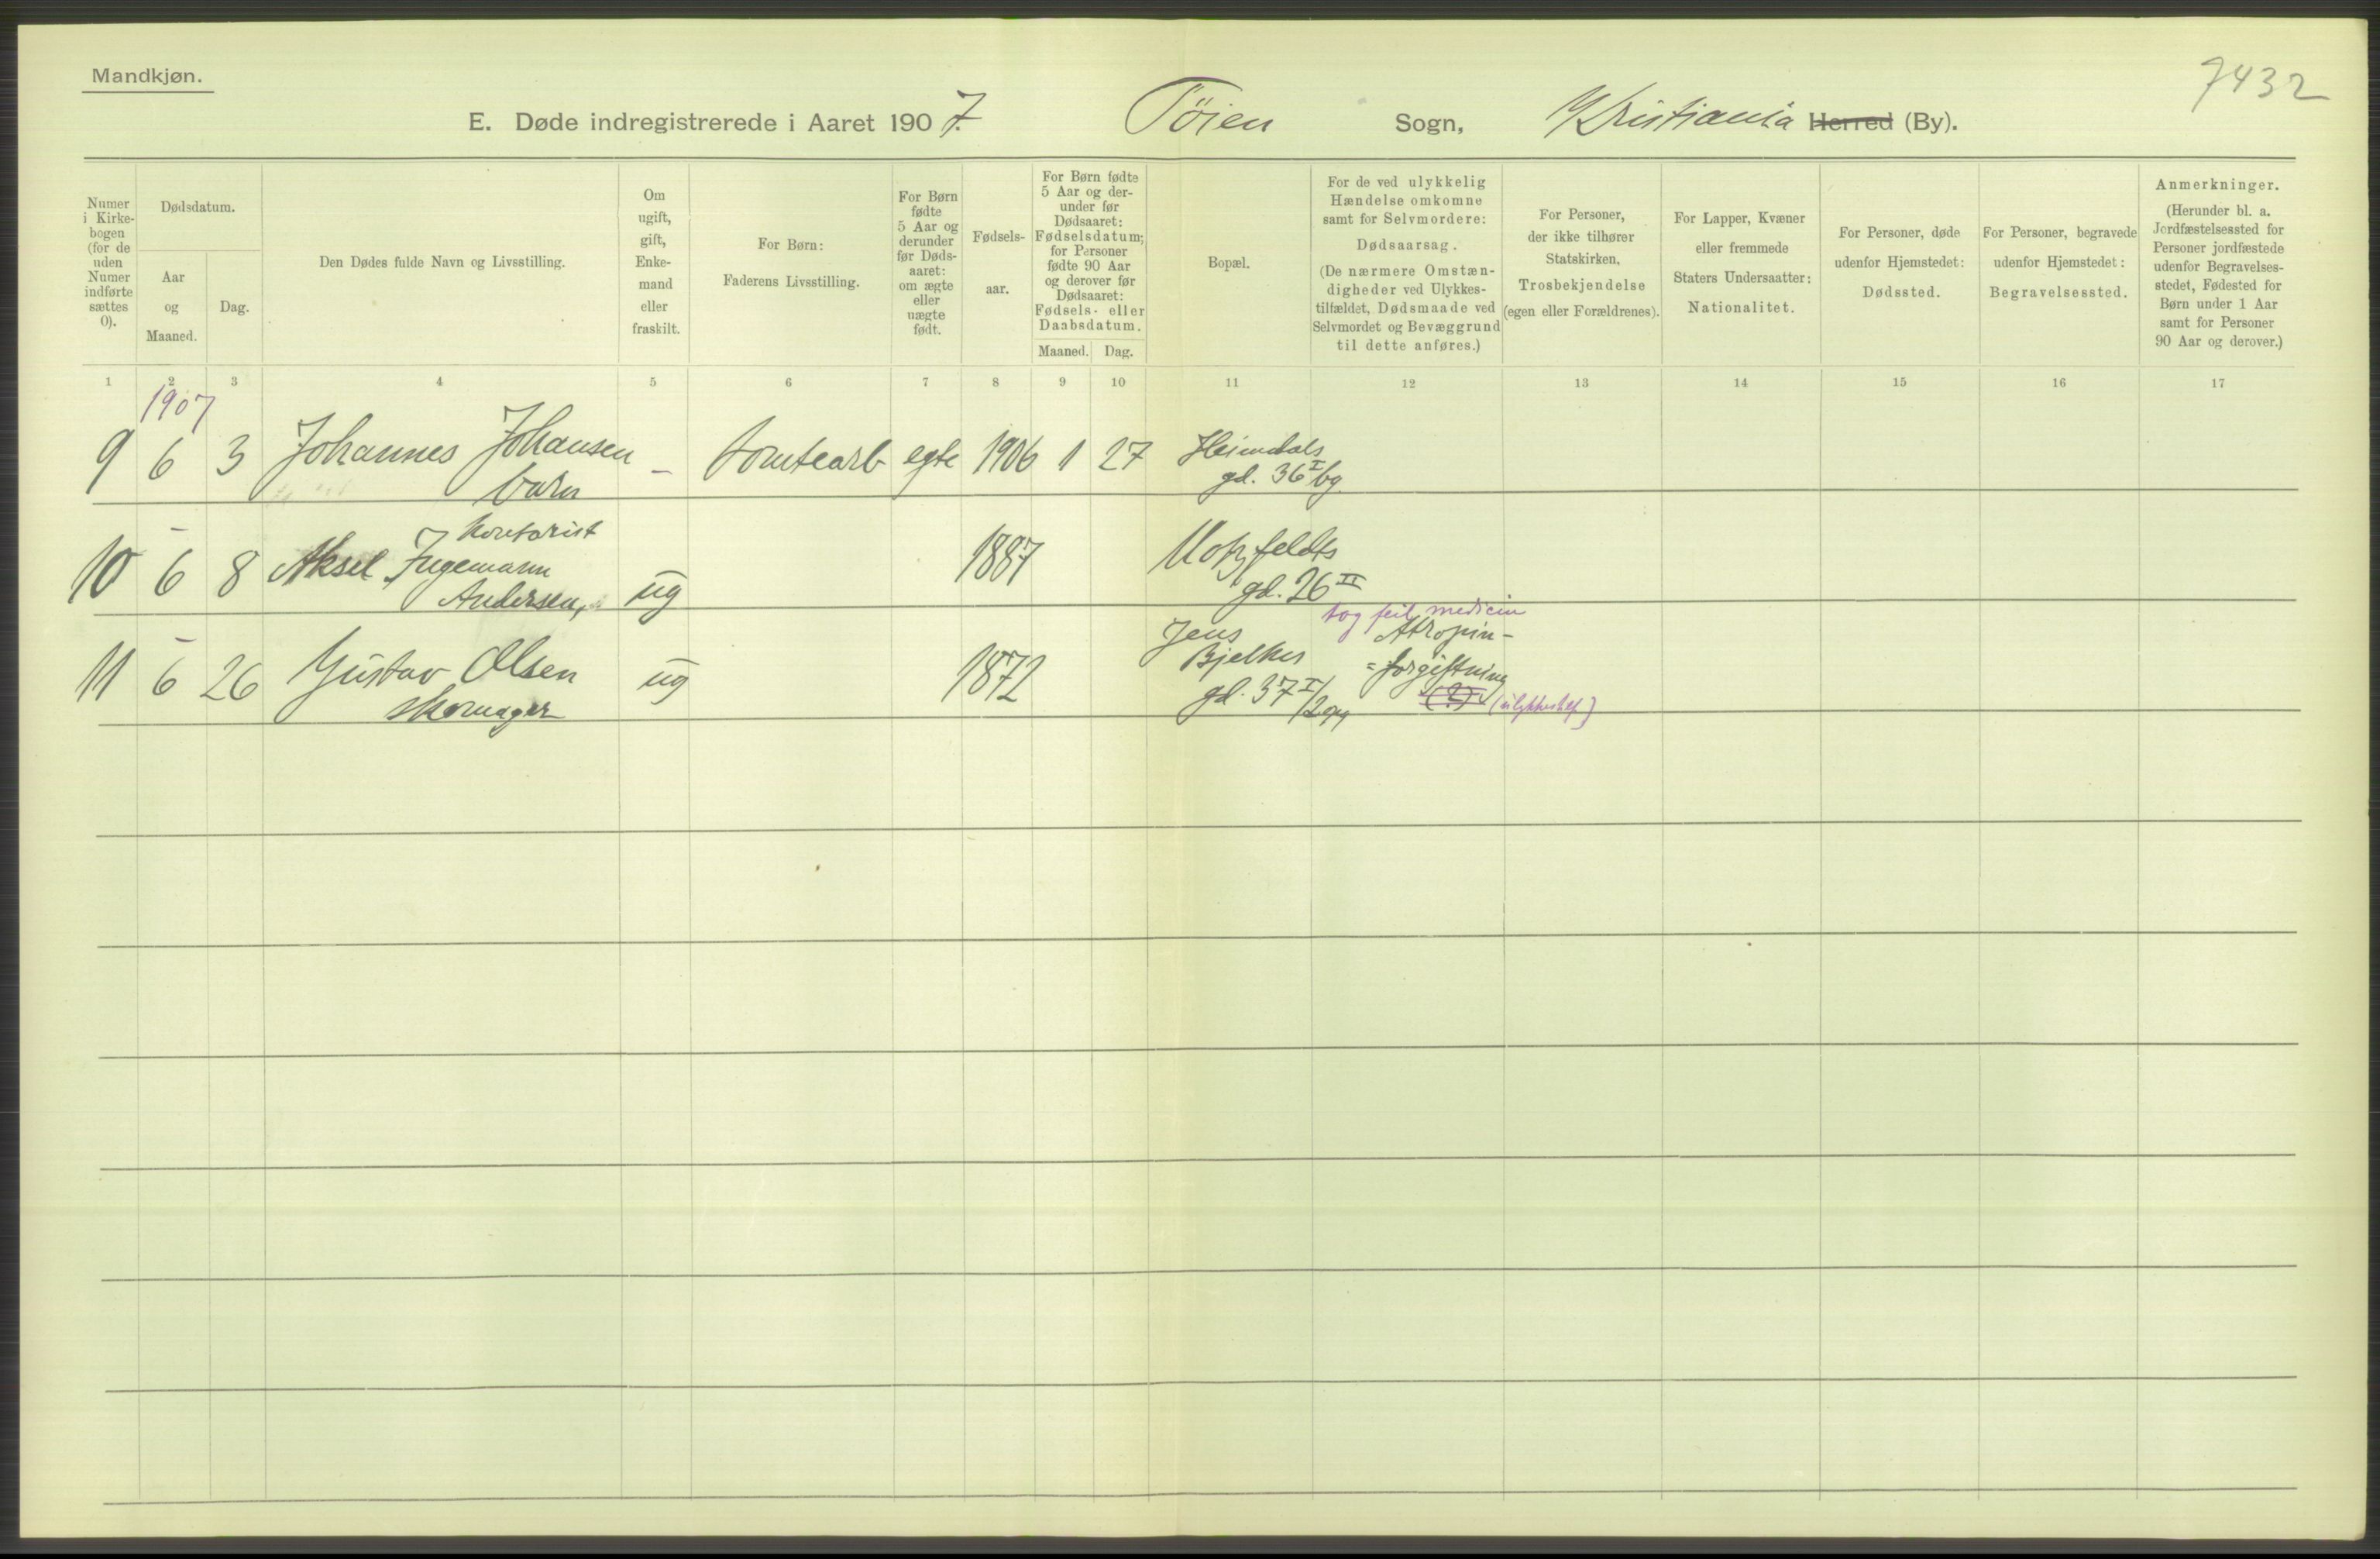 Mandkjøn.
7432
E. Døde indregistrerede i Aaret 1907. Tøien Sogn, Kristiania Herred (By).
Numer i Kirkebogen (for de uden Numer indførte sættes 0).
Dødsdatum.
Aar og Maaned.
Dag.
Den Dødes fulde Navn og Livsstilling.
Om ugift, gift, Enkemand eller fraskilt.
For Børn:
Faderens Livsstilling.
For Børn fødte 5 Aar og derunder før Dødsaaret: om ægte eller uægte født.
Fødselsaar.
For Børn fødte 5 Aar og derunder før Dødsaaret: Fødselsdatum; for Personer fødte 90 Aar og derover før Dødsaaret: Fødsels- eller Daabsdatum.
Maaned. Dag.
Bopæl.
For de ved ulykkelig Hændelse omkomne samt for Selvmordere:
Dødsaarsag.
(De nærmere Omstændigheder ved Ulykkestilfældet, Dødsmaade ved Selvmordet og Bevæggrund til dette anføres.)
For Personer, der ikke tilhører Statskirken,
Trosbekjendelse
(egen eller Forældrenes).
For Lapper, Kvæner eller fremmede Staters Undersaatter:
Nationalitet.
For Personer, døde udenfor Hjemstedet:
Dødssted.
For Personer, begravede udenfor Hjemstedet:
Begravelsessted.
Anmerkninger.
(Herunder bl. a. Jordfæstelsessted for Personer jordfæstede udenfor Begravelsesstedet, Fødested for Børn under 1 Aar samt for Personer 90 Aar og derover.)
1 2 3 4 5 6 7 8 9 10 11 12 13 14 15 16 17
1907
9 6 3 Johannes Johansen — tomtearb egte 1906 1 27 Heimdals
barn gd. 36 I bg.
Kontorist
10 6 8 Aksel Ingemann ug 1887 Motzfeldts
Andersen, gd. 26 II
tog feil medicin
11 6 26 Gustav Olsen ug 1872 Jens Bjelkes Atropin-
skomager gd. 37 I/2 opg =forgiftning
(?) (ulykkestilf)